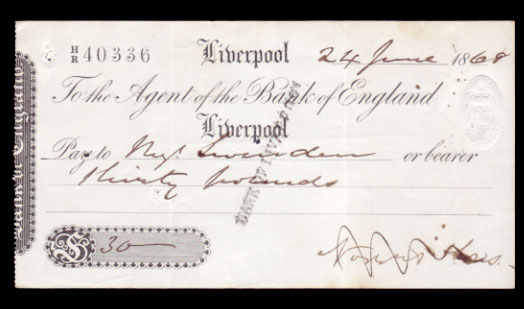 H/R 40336 Liverpool 24 June 1868
To the Agent of the Bank of England
Liverpool
Pay to Swinden or bearer
thirty pounds
£ 30
Bank of England
BANK OF LIVERPOOL